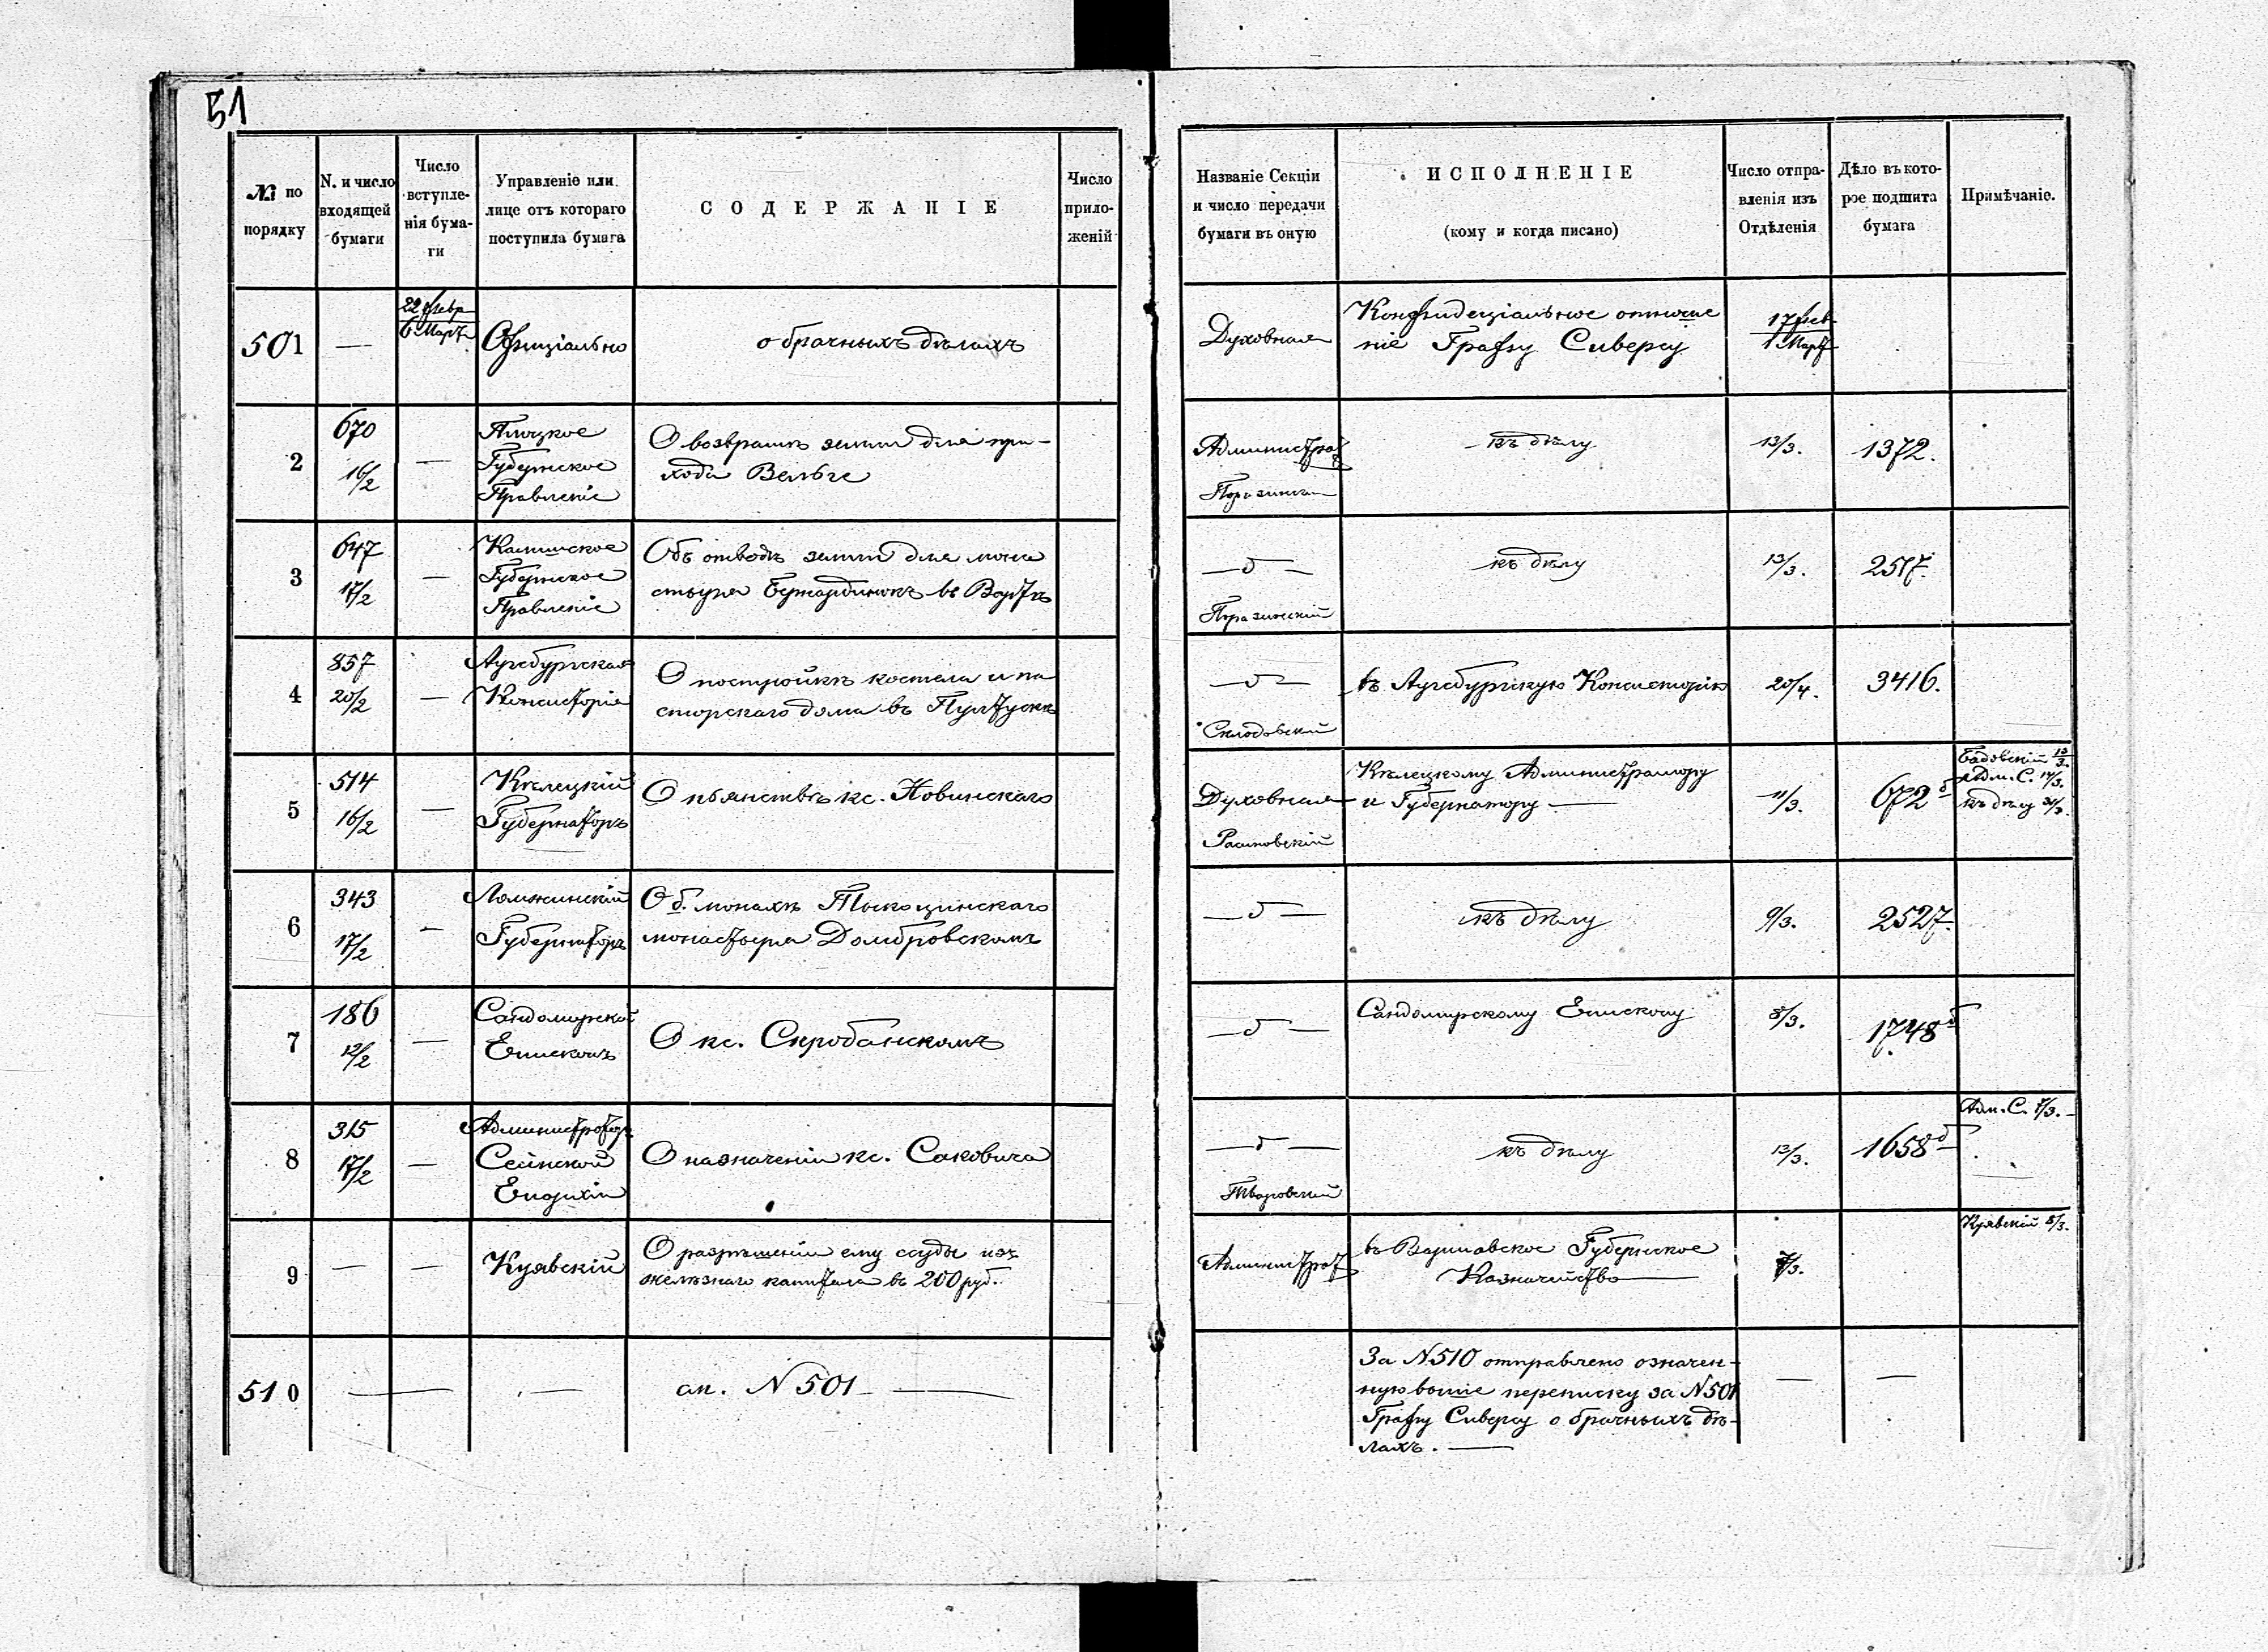 51
№ по порядку
N. и число входящей бумаги
Число вступле-нія бума-ги
Управленіе или лице отъ котораго поступила бумага
СОДЕРЖАНІЕ
Число прило-женій
Названіе Секціи и число передачи бумаги въ оную
ИСПОЛНЕНІЕ
(кому и когда писано)
Число отпра-вленія изъ Отдѣленія
Дѣло въ кото-рое подшита бумага
Примѣчаніе.
501
—
22 Февр
6 Марта
Офиціально
о брачныхъ дѣлахъ
Духовная
Конфиденціальное отноше
ніе Графу Сиверсу
17 Фев
1 Марта
2
670
16/2
—
Плоцкое
Губернское
Правленіе
О возвратѣ земли для при-
хода Вельге
Администрат
къ дѣлу
13/3.
1372.
3
647
17/2
—
Калишское
Губернское
Правленіе
Объ отводѣ земли для мона
стыря Бернардинокъ въ Вартѣ
— д —
къ дѣлу
13/3.
2517.
4
857
20/2
—
Аугсбургская
Консисторія
О постройкѣ костела и па
сторскаго дома въ Пултускѣ
— д —
Склодовскій
въ Аугсбургскую Консисторію
20/4.
3416.
5
514
16/2
—
Кѣлецкій
Губернаторъ
О пьянствѣ кс. Новинскаго
Духовная
Кѣлецкому Администратору
и Губернатору —
11/3.
672 д
Бадовскій 13/3.
Адм. С. 14/3.
къ дѣлу 31/3.
6
343
17/2
—
Ломжинскій
Губернаторъ
Об. монахѣ Тыкоцинскаго
монастыря Домбровскомъ
— д —
къ дѣлу
9/3.
2527.
7
186
12/2
—
Сандомирскій
Епископъ
О кс. Скробанскомъ
— д —
Сандомирскому Епископу
8/3.
1748 д
8
315
17/2
—
Администраторъ
Сейнской
Епархіи
О назначеніи кс. Саковича
— д —
Тваровскій
къ дѣлу
13/3.
1658 д
Адм. С. 7/3.
9
—
—
Куявскій
О разрѣшеніи ему ссуды изъ
желѣзнаго капитала въ 200 руб.
Администрат
въ Варшавское Губернское
Казначейство —
7/3.
Куявскій 8/3.
510
—
—
см. N 501 —
За N 510 отправлено означен-
ную выше переписку за N 501
Графу Сиверсу о брачныхъ дѣ-
лахъ. —
—
—